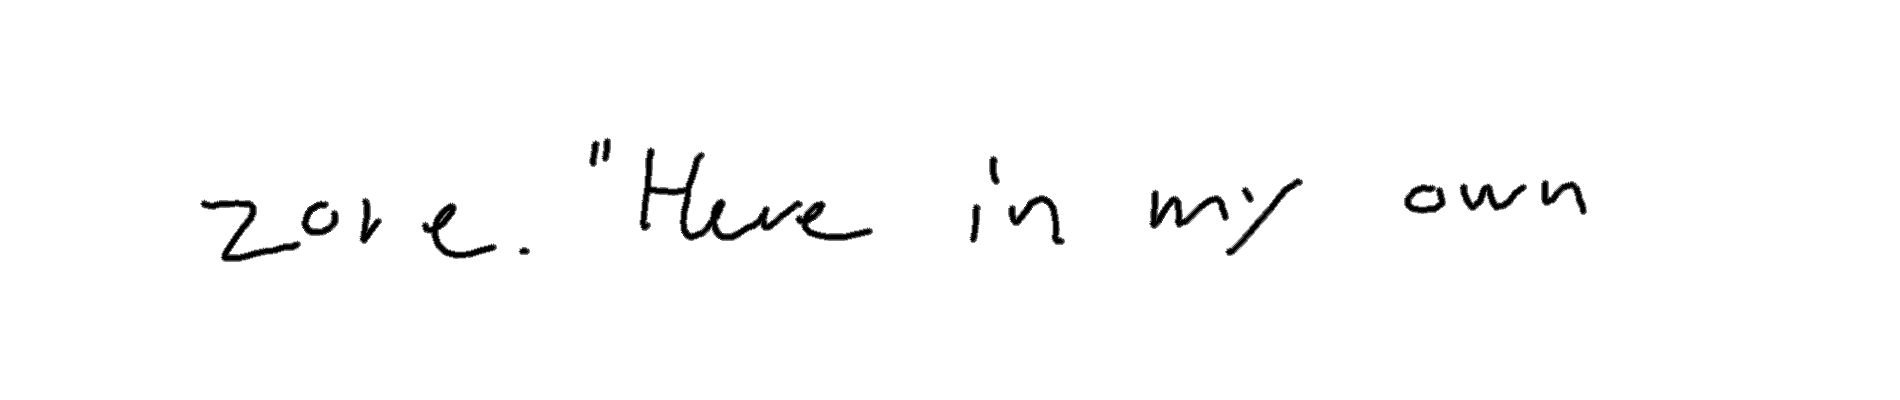 zore. "Here in my own